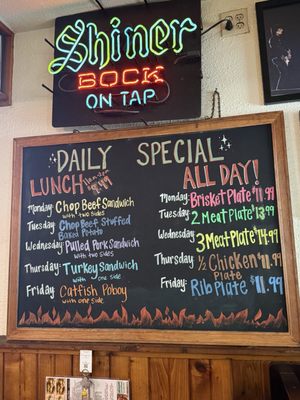 Shiner
BOCK
ON TAP
DAILY SPECIAL
LUNCH
11am-3pm
8.99
Monday: Chop Beef Sandwich
with two sides
Tuesday: Chop Beef Stuffed
Baked Potato
Wednesday: Pulled Pork Sandwich
with two sides
Thursday: Turkey Sandwich
with one side
Friday: Catfish Poboy
with one side
ALL DAY!
Monday: Brisket Plate $11.99
Tuesday: 2 Meat Plate 13.99
Wednesday: 3 Meat Plate $14.99
Thursday: 1/2 Chicken $11.99
Plate
Friday: Rib Plate $11.99